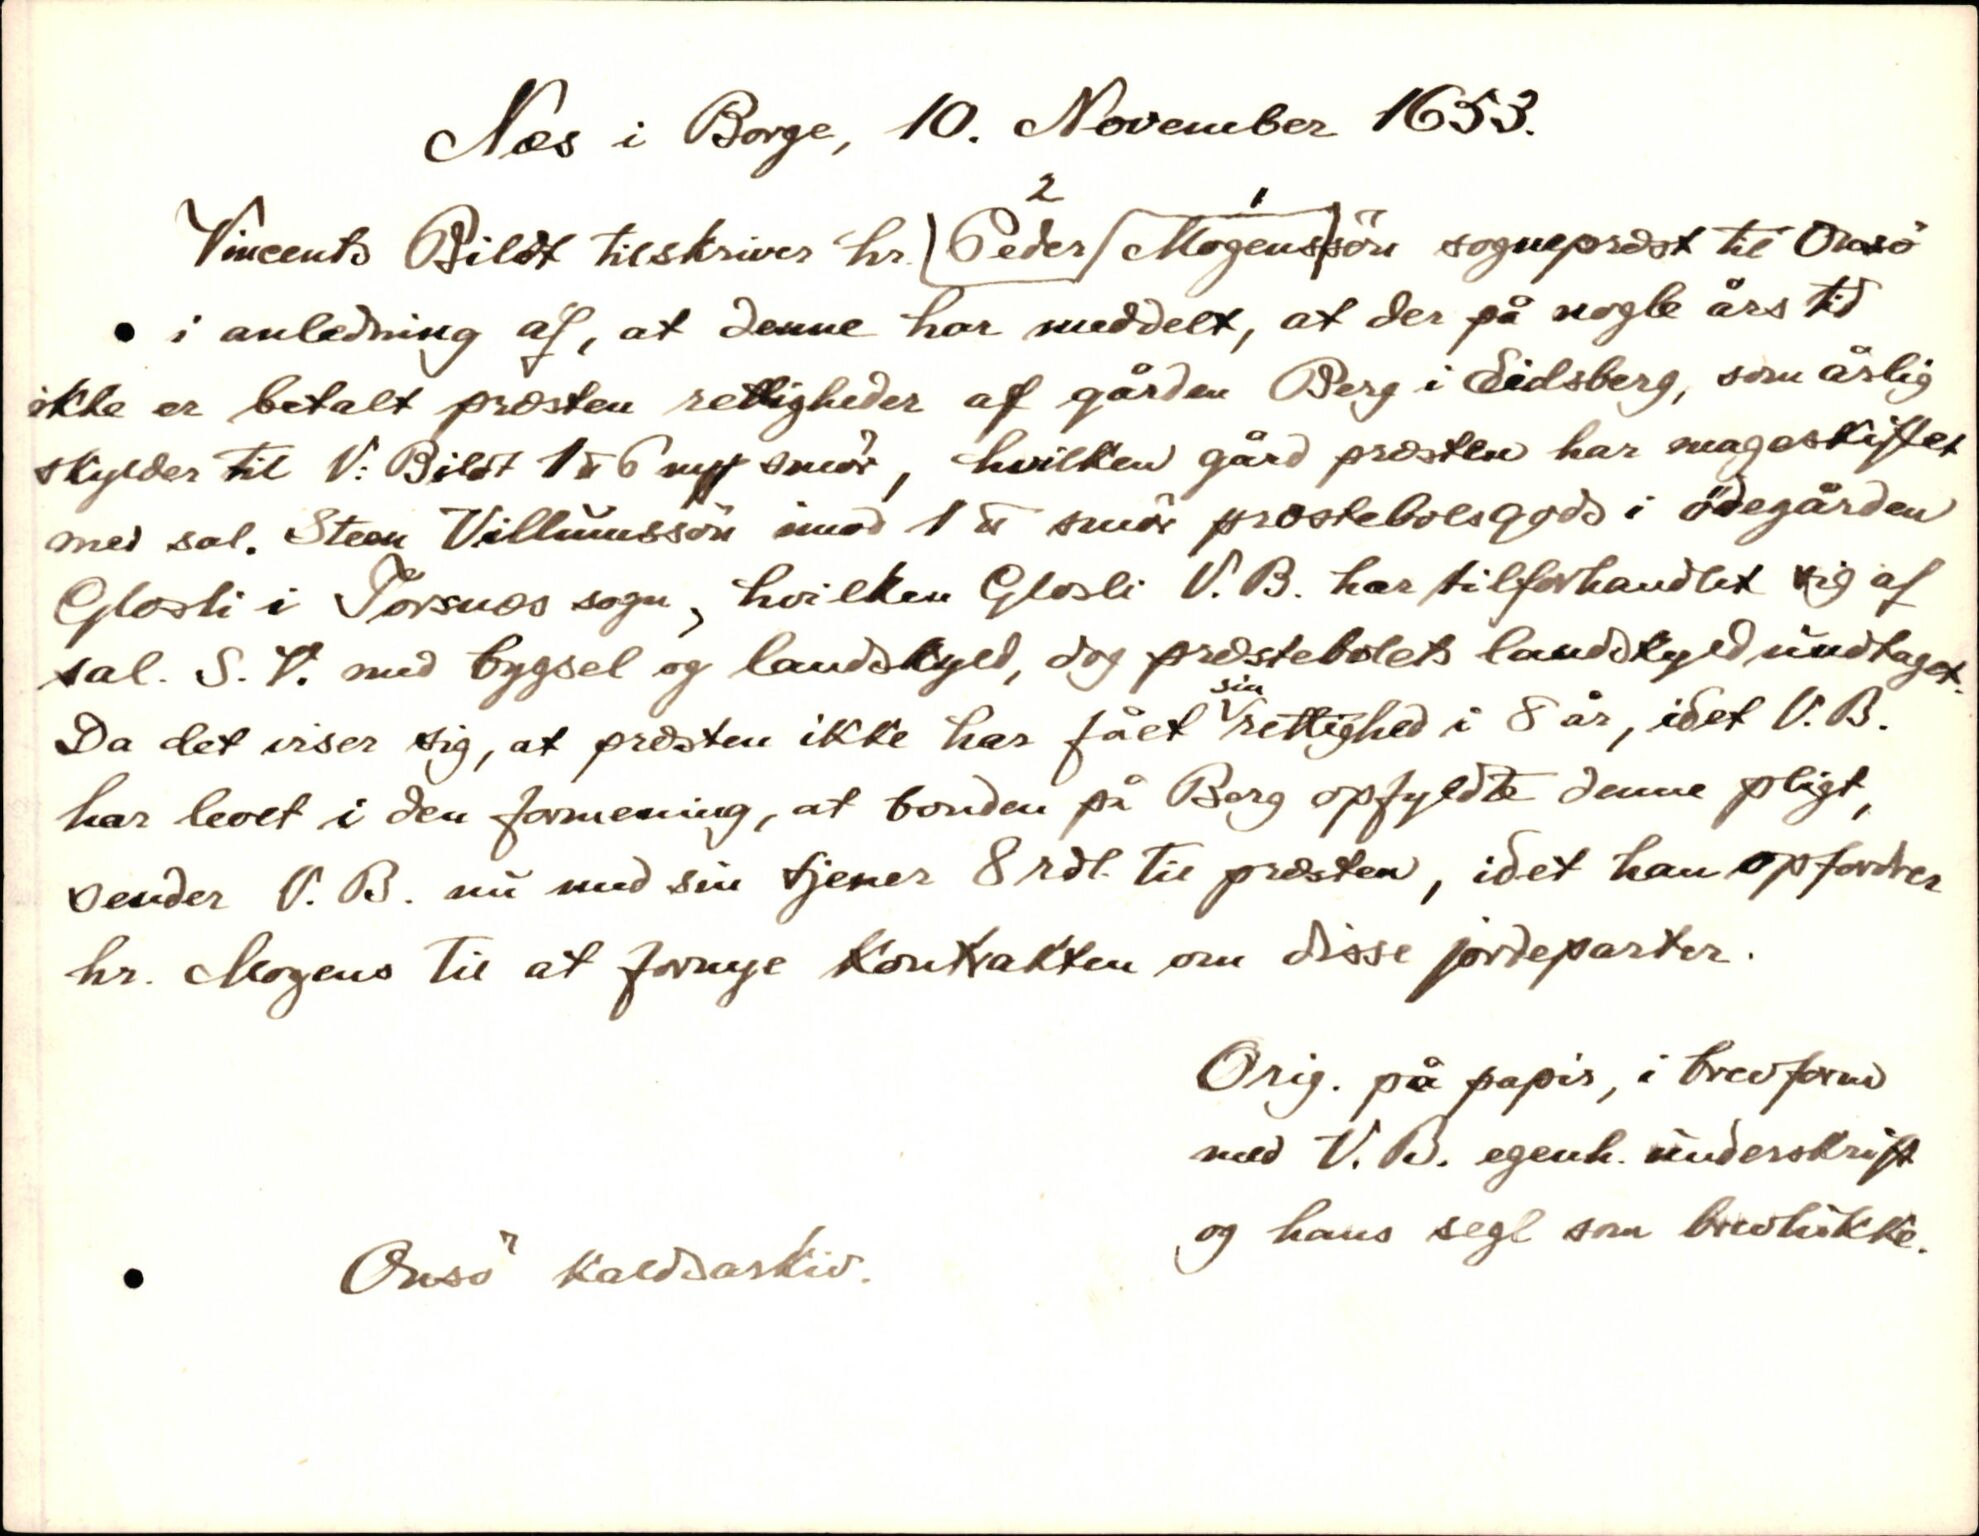 Næs i Borge, 10. November 1653.
2 1
Vincents Bildt tilskriver hr. Peder Mogenssön sognepræst til Onsö
i anledning af, at denne har meddelt, at der på nogle års tid
ikke er betalt præsten rettigheder af gården Berg i Eidsberg, som årlig
skylder til V. Bildt 1 6 smör, hvilken gård præsten har mageskiftet
med sal. Steen Villumssön imod 1 smör præstebolsgods i ödegården
Glosli i Torsnæs sogn, hvilken Glosli V. B. har tilforhandlet sig af
sal. S. V. med bygsel og landskyld, dog præstebolets landskyld undtaget.
Da det viser sig, at præsten ikke har fået sin rettighed i 8 år, idet V. B.
har levet i den formening, at bonden på Berg opfyldte denne pligt,
sender V. B. nu med sin tjener 8 rdl. til præsten, idet han opfordrer
hr. Mogens til at fornye kontrakten om disse jordeparter.
Orig. på papir, i brevform
med V. B. egenh. underskrift
og hans segl som brevlukke.
Onsö kaldsarkiv.